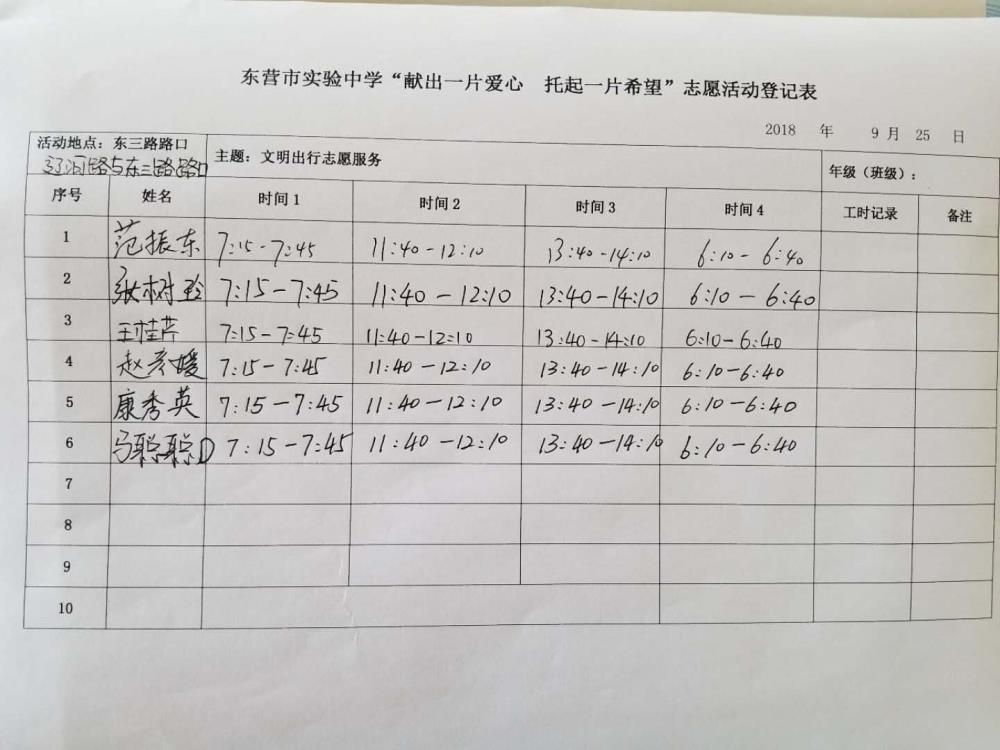 东营市实验中学“献出一片爱心 托起一片希望”志愿活动登记表
2018 年 9 月 25 日
活动地点：东三路路口 主题：文明出行志愿服务 年级（班级）：
辽河路与东三路路口
序号 姓名 时间1 时间2 时间3 时间4 工时记录 备注
1 范振东 7:15-7:45 11:40-12:10 13:40-14:10 6:10-6:40
2 张树玲 7:15-7:45 11:40-12:10 13:40-14:10 6:10-6:40
3 王桂芹 7:15-7:45 11:40-12:10 13:40-14:10 6:10-6:40
4 赵彦媛 7:15-7:45 11:40-12:10 13:40-14:10 6:10-6:40
5 康秀英 7:15-7:45 11:40-12:10 13:40-14:10 6:10-6:40
6 马聪聪 7:15-7:45 11:40-12:10 13:40-14:10 6:10-6:40
7
8
9
10